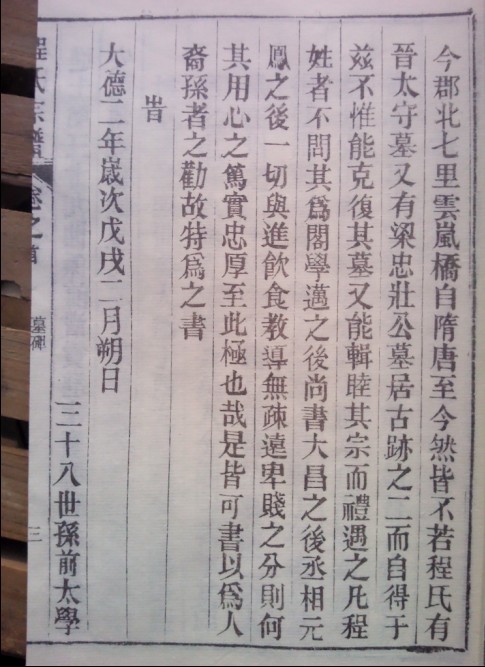 今郡北七里雲嵐橋自隋唐至今然皆不若程氏有
晉太守墓又有梁忠壯公墓居古跡之二而自得于
茲不惟能克復其墓又能輯睦其宗而禮遇之凡程
姓者不問其為閣學邁之後尚書大昌之後丞相元
鳳之後一切與進飲食教導無疎遠卑賤之分則何
其用心之篤實忠厚至此極也哉是皆可書以為人
裔孫者之勸故特為之書
旹
大德二年嵗次戊戌二月朔日
三十八世孫前太學
程氏宗譜
卷之首
墓碑
三